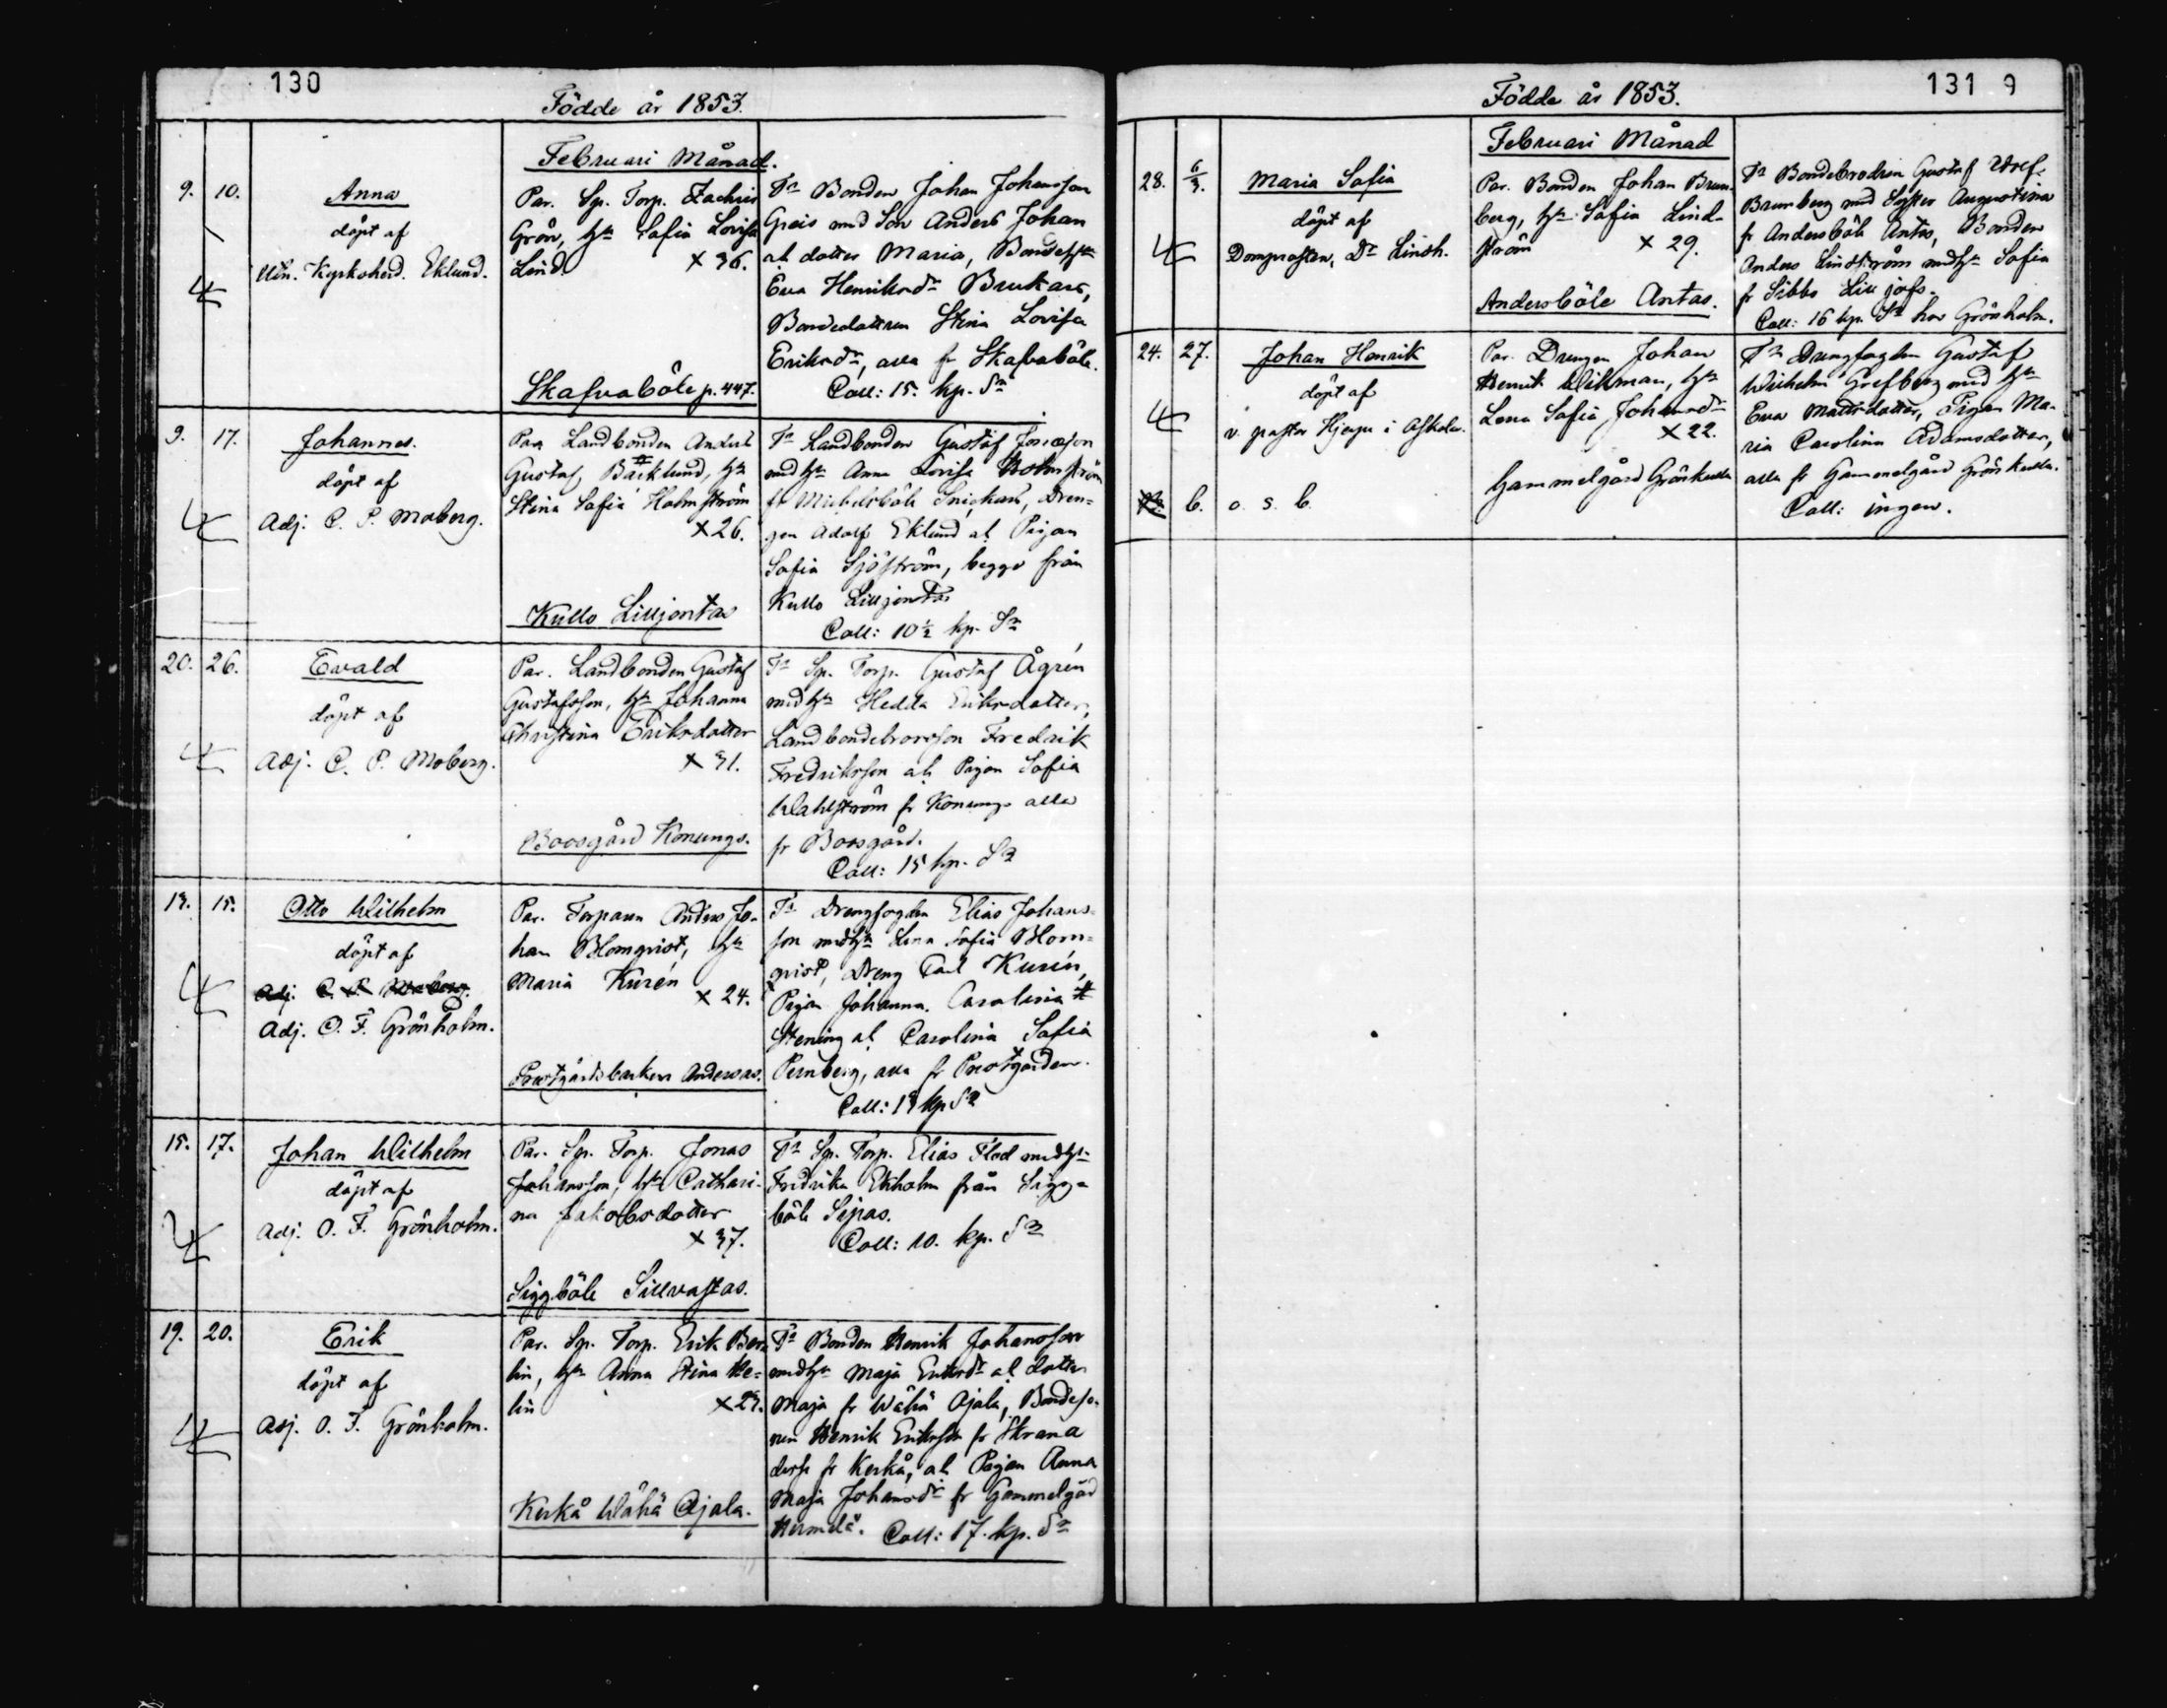 130
Födde år 1853.
Februari Månad.
9. 10.
Anna
döpt af
Kyrkoherd. Eklund.
Par. Sp. Torp. Zachris
Grön, hu Sofia Lovisa
Lind. × 36.
Skafvaböle p. 447.
Tn Bonden Johan Johansson
Greis med Son Anders Johan
at dotter Maria, Bondehu
Eva Henriksdr Brukars,
Bondedottren Stina Lovisa
Eriksdr, alla fr Skafvaböle.
Coll: 15. kp. Sr
9. 17.
Johannes.
döpt af
Adj. C. P. Moberg.
Par Landbonden Anders
Gustaf Bäcklund, hu
Stina Sofia Holmström
×26.
Kullo Lilljontas
Tn Landbonden Gustaf
med hu Anna Lovisa Holmström
fr Mickelsböle Snickars, Dren-
gen Adolf Eklund at Pigan
Sofia Sjöström, begge från
Kullo Lilljontas
Coll: 10½ kp. Sr
20. 26.
Evald
döpt af
Adj. C. P. Moberg.
Par. Landbonden Gustaf
Gustafsson, hu Johanna
Christina Eriksdotter
× 31.
Boosgård Konungs.
Tn Sp. Torp. Gustaf Ågrén
med hu Hedda Eriksdotter,
Landbondebrorson Fredrik
Fredriksson at Pigan Sofia
Wahlström fr Konungs alla
fr Boosgård.
Coll: 15 kp. Sr
13. 15.
Otto Wilhelm
döpt af
Adj. C. P. Moberg.
Adj. O. F. Grönholm.
Par. Torparen Anders Jo-
han Blomqvist, hu
Maria Kurén
× 24.
Prostgårdsbacken Anderas.
Tn Drengfogden Elias Johans-
son med hu Lena Sofia Blom-
qvist, Dreng Carl Kurén,
Pigan Johanna Carolina
Stening at Carolina Sofia
Pernberg, alla fr Prostgården.
Coll: 13 kp Sr
15. 17.
Johan Wilhelm
döpt af
Adj. O. F. Grönholm.
Par. Sp. Torp. Jonas
Johansson, hu Cathari-
na Jakobsdotter
× 37.
Siggböle Sillvastas.
Tn Sp. Torp. Elias Flod med hu
Fredrika Ekholm från Sigg-
böle Sipas.
Coll: 10. kp. Sr
19. 20.
Erik
döpt af
Adj. O. F. Grönholm.
Par. Sp. Torp. Erik Ber-
lin, hu Anna Stina He-
lin ×23.
Kerkå Wähä Ojala.
Tn Bonden Henrik Johansson
med hu Maja Eriksdr at dotter
Maja fr Wähä Ojala, Bondeso-
nen Henrik Eriksson fr Skrana
fr Kerkå, at Pigan Anna
Maja Johansdr fr Gammelgård
Coll: 17. kp. Sr
131 9
Födde år 1853.
Februari Månad
28. 6/3.
Maria Sofia
döpt af
Domprosten, Dr Linsén.
Par. Bonden Johan Brun-
berg, hu Sofia Lind-
ström × 29.
Andersböle Antas.
Tn Bondebrodren Gustaf Adolf
Brunberg med Syster Augustina
fr Andersböle Antas, Bonden
Anders Lindström med hu Sofia
fr Sibbo
Coll: 16 kp. Sr har Grönholm.
24. 27.
Johan Henrik
döpt af
v. pastor i Askola.
Par. Drengen Johan
Henrik Wikman, hu
Lena Sofia Johansdr
× 22.
Gammelgård Grönkulla
Tn Drengfogden Gustaf
Wilhelm Grefberg med hu
Eva Mattsdotter, Pigan Ma-
ria Carolina Adamsdotter,
alla fr Gammelgård Grönkulla.
Coll: ingen.
b. o. s. b.